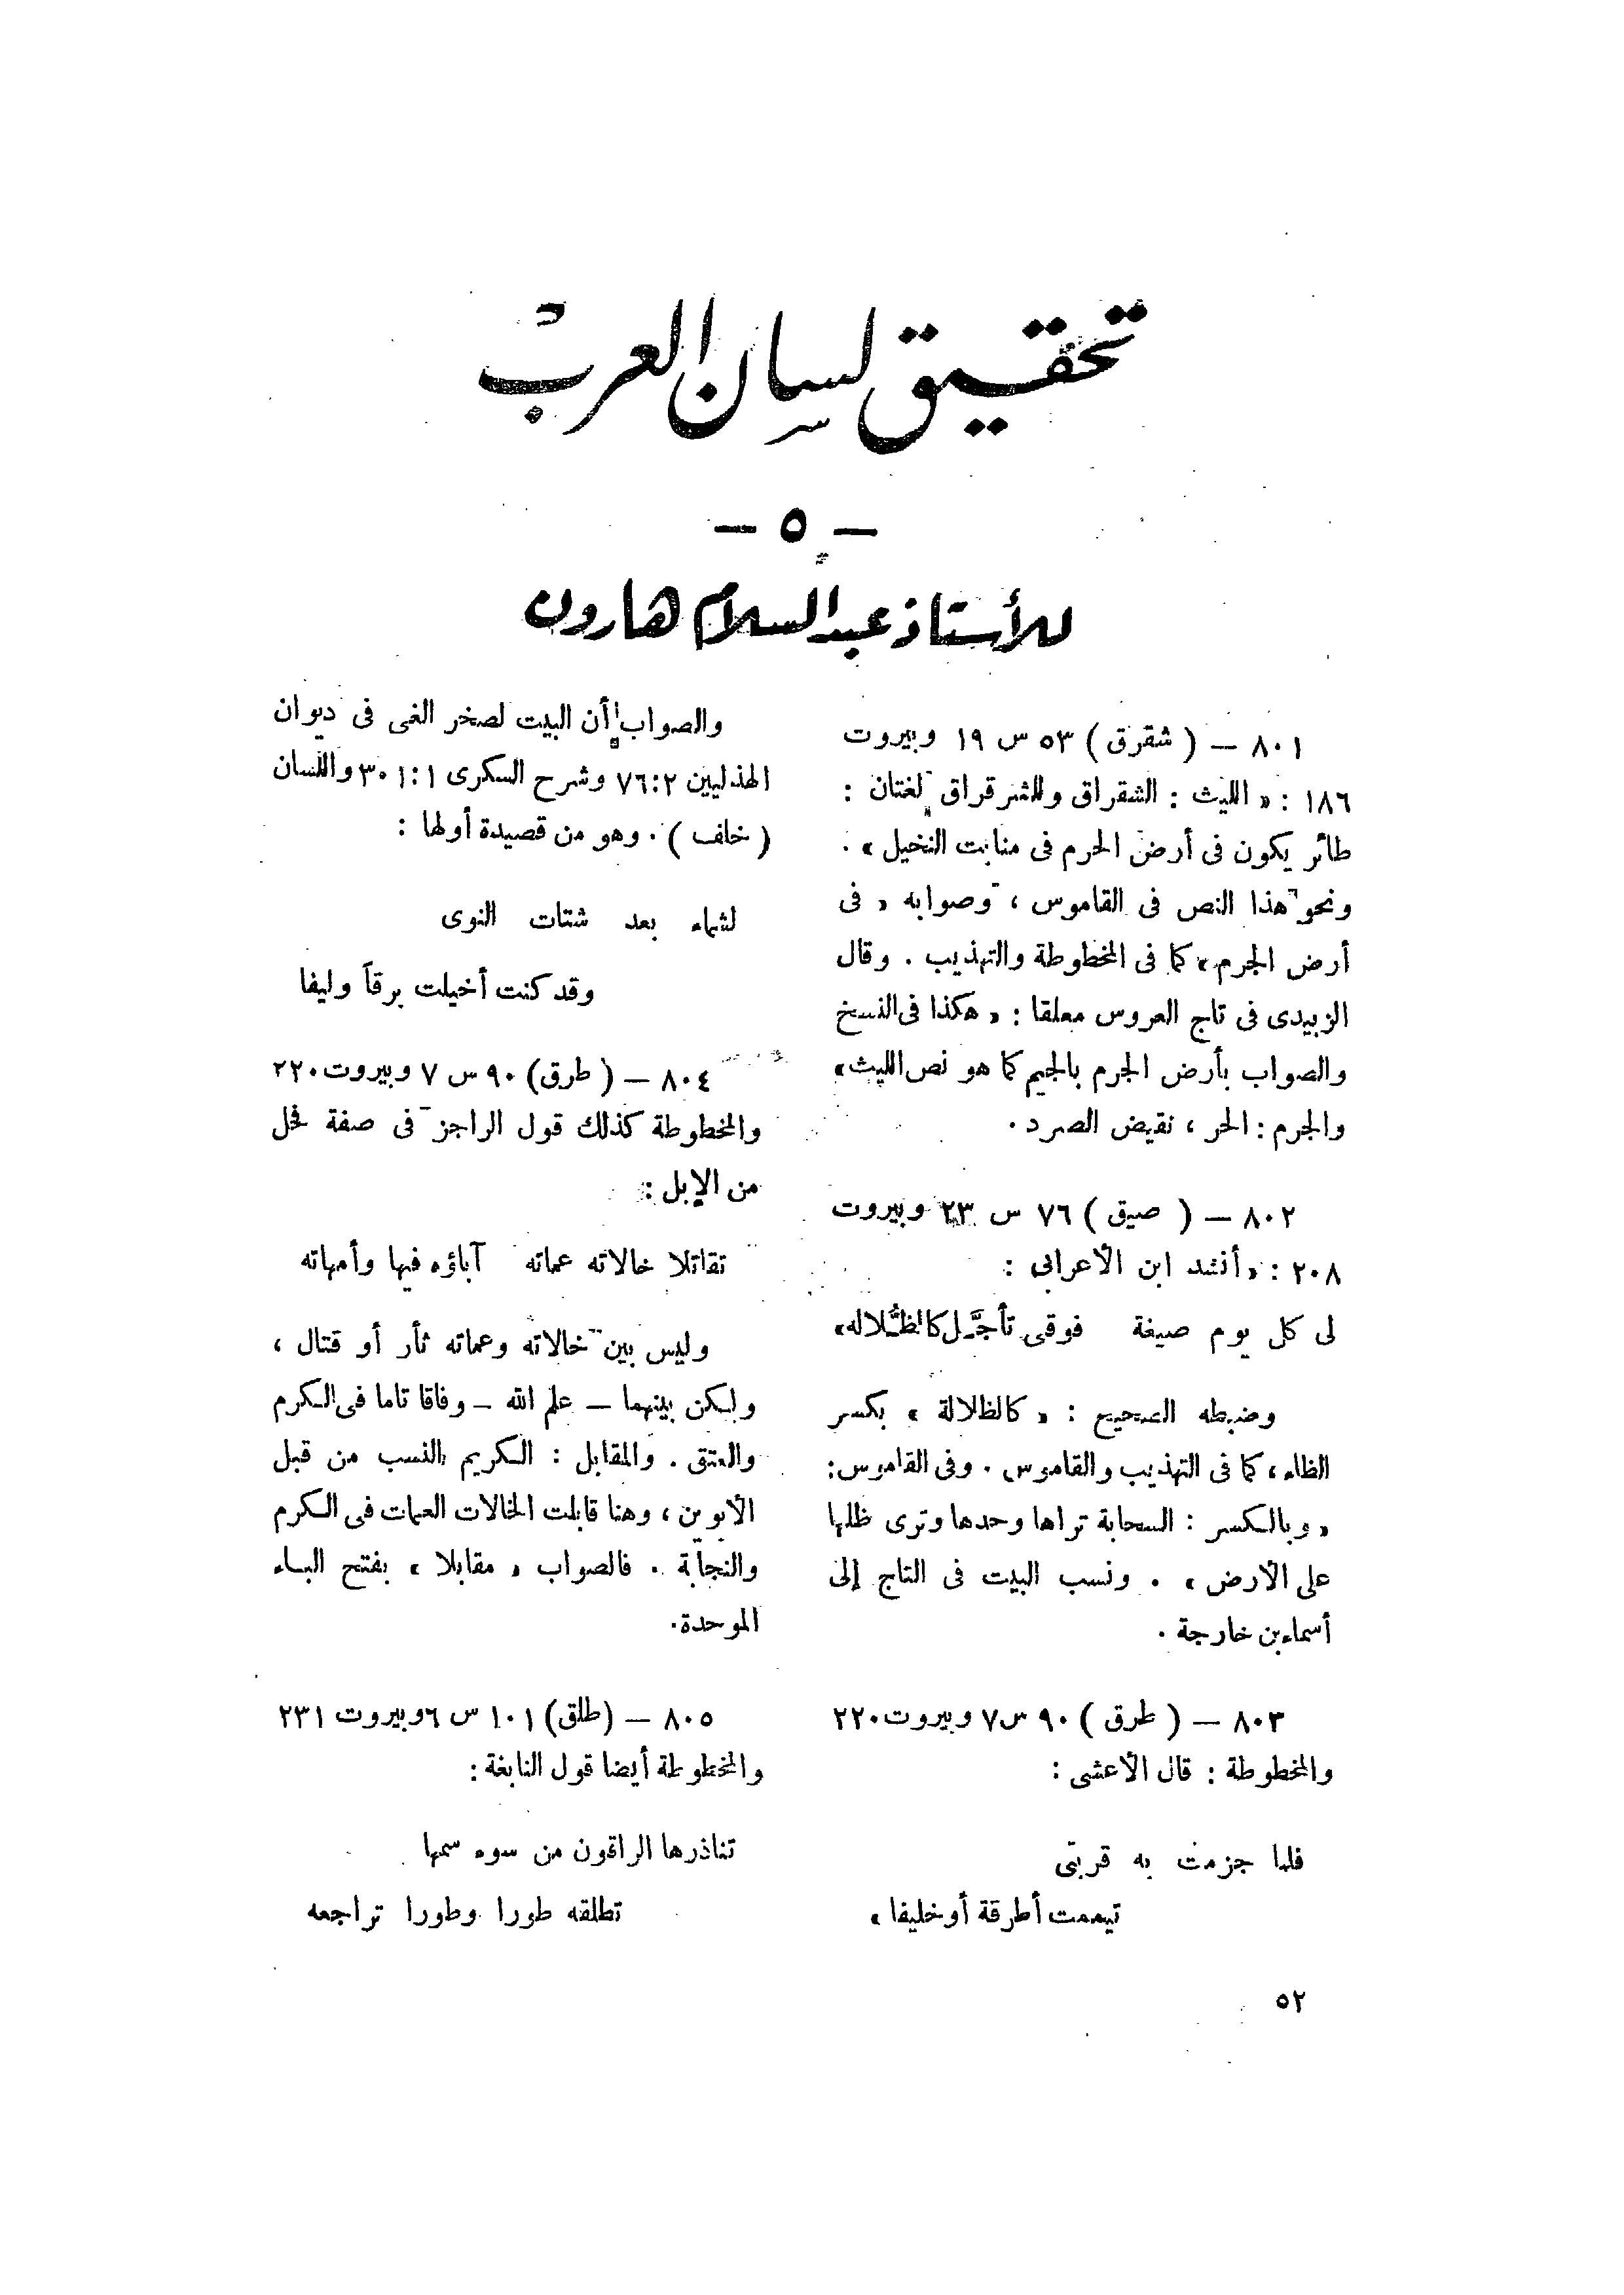 تحقيق لسان العرب
— ٥ —
للأستاذ عبد السلام هارون
٨٠١ — ( شقرق ) ٥٣ س ١٩ وبيروت
١٨٦ : « الليث : الشقراق والشرقراق لغتان :
طائر يكون فى أرض الحرم فى منابت النخيل » .
ونحو هذا النص فى القاموس ، وصوابه « فى
أرض الجرم » كما فى المخطوطة والتهذيب . وقال
الزبيدى فى تاج العروس معلقا : « هكذا فى النسخ
والصواب بأرض الجرم بالجيم كما هو نص الليث »
والجرم : الحر ، نقيض الصرد .
٨٠٢ — ( صيق ) ٧٦ س ٢٣ وبيروت
٢٠٨ : « أنشد ابن الأعرابى :
لى كل يوم صيقة فوقى تأجَّل كالظُّلاله »
وضبطه الصحيح : « كالظلالة » بكسر
الظاء ، كما فى التهذيب والقاموس . وفى القاموس :
« وبالكسر : السحابة تراها وحدها وترى ظلها
على الأرض » . ونسب البيت فى التاج إلى
أسماء بن خارجة .
٨٠٣ — ( طرق ) ٩٠ س ٧ وبيروت ٢٢٠
والمخطوطة : قال الأعشى :
فلما جزمت به قربتى
تيممت أطرقة أو خليفا »
والصواب أن البيت لصخر الغى فى ديوان
الهذليين ٢ : ٧٦ وشرح السكرى ١ : ٣٠١ واللسان
( خلف ) . وهو من قصيدة أولها :
لشماء بعد شتات النوى
وقد كنت أخيلت برقاً وليفا
٨٠٤ — ( طرق ) ٩٠ س ٧ وبيروت ٢٢٠
والمخطوطة كذلك قول الراجز فى صفة فحل
من الإبل :
تقاتلا خالاته عماته آباؤه فيها وأمهاته
وليس بين خالاته وعماته ثأر أو قتال ،
ولكن بينهما — علم الله — وفاقا تاما فى الكرم
والعتق . والمقابل : الكريم النسب من قبل
الأبوين ، وهنا قابلت الخالات العمات فى الكرم
والنجابة . فالصواب « مقابلا » بفتح الباء
الموحدة .
٨٠٥ — ( طلق ) ١٠١ س ٦ وبيروت ٢٣١
والمخطوطة أيضا قول النابغة :
تناذرها الراقون من سوء سمها
تطلقه طورا وطورا تراجعه
٥٢